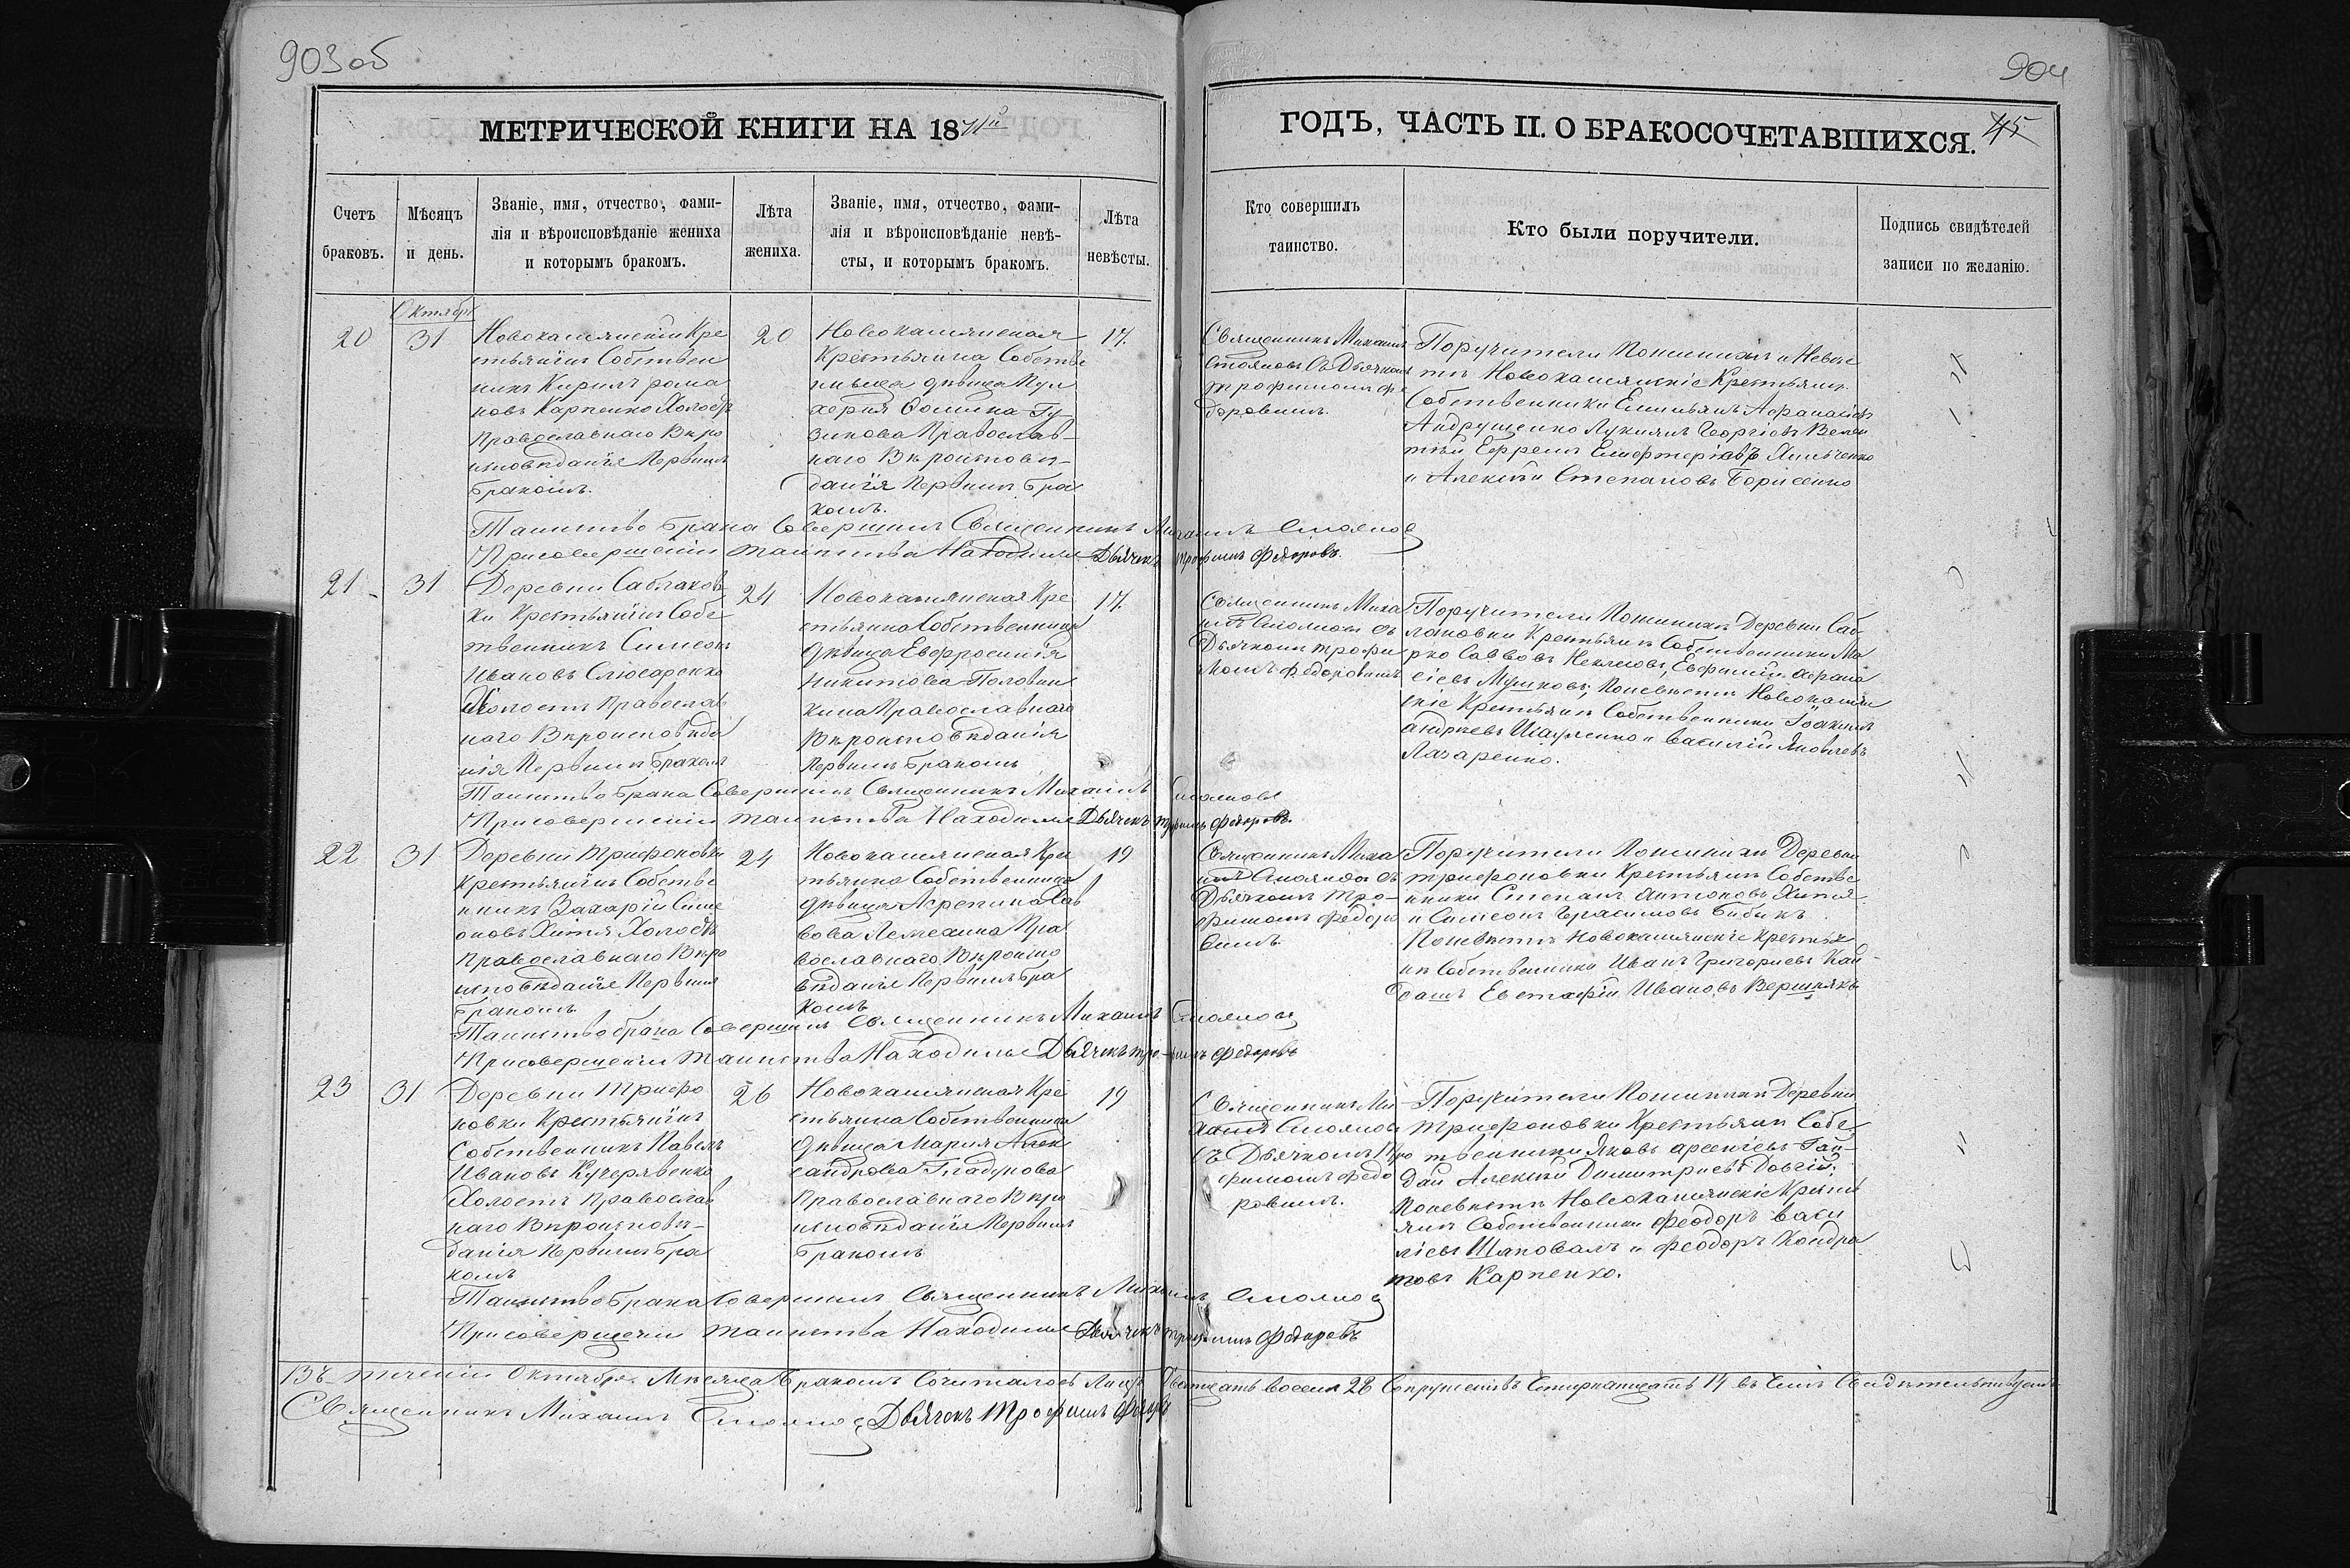 903 об
904
МЕТРИЧЕСКОЙ КНИГИ НА 1871й
ГОДЪ, ЧАСТЬ II. О БРАКОСОЧЕТАВШИХСЯ.
45
Счетъ браковъ.
Мѣсяцъ и день.
Званіе, имя, отчество, фами-
лія и вѣроисповѣданіе жениха
и которымъ бракомъ.
Лѣта жениха.
Званіе, имя, отчество, фами-
лія и вѣроисповѣданіе невѣ-
сты, и которымъ бракомъ.
Лѣта невѣсты.
Кто совершилъ
таинство.
Кто были поручители.
Подпись свидѣтелей
записи по желанію.
Октября
20
31
Новокашлянскій Кре
стьянинъ Собствен
никъ Кирилъ Рома
новъ Карпенко Холостъ
Православнаго Вѣро
исповѣданія Первымъ
бракомъ.
20
Новокашлянская
Крестьянка Собстве
нница дѣвица Пул
херія Фомина Гу-
зикова Православ-
наго Вѣроисповѣ-
данія Первымъ бра
комъ.
17.
Священникъ Михаилъ
съ Дьячкомъ
Трофимомъ Фе
доровымъ.
Поручители По женихѣ и Невѣс
тѣ Новокашлянскіе Крестьяне
Собственники Емельянъ Афанасіевъ
Андрущенко Лукіянъ Георгіевъ
Ефремъ Елефтеріевъ
и Алексѣй Степановъ Борисенко
Таинство брака Совершилъ Священникъ Михаилъ
При совершеніи таинства Находился Дьячекъ Трофимъ Федоровъ.
21
31
Деревни Саблуков
ки Крестьянинъ Собс
твенникъ Симеонъ
Ивановъ Слюсаренко
Холостъ Православ
наго Вѣроисповѣда
нія Первымъ бракомъ
24
Новокашлянская Кре
стьянка Собственница
дѣвица Евфросинія
Никитова Половин
кина Православнаго
Вѣроисповѣданія
Первымъ бракомъ
17.
Священникъ Миха
илъ съ
Дьячкомъ Трофи
момъ Федоровымъ
Поручители По женихѣ Деревни Саб
луковки Крестьяне Собственники Ма
рко Саввовъ Евфимій Афана
сіевъ По невѣстѣ Новокашлян
скіе Крестьяне Собственники Іоакимъ
Андреевъ и Василій Яковлевъ
Лазаренко.
Таинство брака Совершилъ Священникъ Михаилъ
При совершеніи таинства Находился Дьячекъ Трофимъ Федоровъ.
22
31
Деревни Трифоновки
Крестьянинъ Собстве
нникъ Захарій Симе
оновъ Холостъ
Православнаго Вѣро
исповѣданія Первымъ
бракомъ
24
Новокашлянская Кре
стьянка Собственница
дѣвица Агрепина Сав
вова Лемехина Пра
вославнаго Вѣроиспо
вѣданія Первымъ бра
комъ
19
Священникъ Миха
илъ съ
Дьячкомъ Тро-
фимомъ Федоро
вымъ
Поручители По женихѣ Деревни
Трифоновки Крестьяне Собстве
нники Степанъ Антоновъ
и Симеонъ Герасимовъ Бибикъ
По невѣстѣ Новокашлянскіе Крестья
не Собственники Иванъ Григорьевъ Кай-
дашъ Евстафій Ивановъ Вершнякъ
Таинство брака Совершилъ Священникъ Михаилъ
При совершеніи таинства Находился Дьячекъ Трофимъ Федоровъ
23
31
Деревни Трифо
новки Крестьянинъ
Собственникъ Павелъ
Ивановъ Кучерявенко
Холостъ Православ
наго Вѣроисповѣ-
данія Первымъ бра
комъ
26
Новокашлянская Кре
стьянка Собственница
дѣвица Марія Алек
сандрова Гладурова
Православнаго Вѣро
исповѣданія Первымъ
бракомъ
19
Священникъ Ми
хаилъ
съ Дьячкомъ Тро
фимомъ Федо
ровымъ.
Поручители По женихѣ Деревни
Трифоновки Крестьяне Собс
твенники Яковъ Арсеніевъ Гай-
дай Алексѣй Димитріевъ Довгій;
По невѣстѣ Новокашлянскіе Кресть
яне Собственники Феодоръ Васи
ліевъ Шаповалъ и Феодоръ Кондра
товъ Карпенко.
Таинство брака Совершилъ Священникъ Михаилъ
При совершеніи таинства Находился Дьячекъ Трофимъ Федоровъ
Въ теченіи Октября Мѣсяца бракомъ Сочеталось Лицъ Двадцать восемь 28 Супружествъ Четырнадцать 14 въ чемъ Свидѣтельствуемъ
Священникъ Михаилъ Дьячекъ Трофимъ Федоровъ